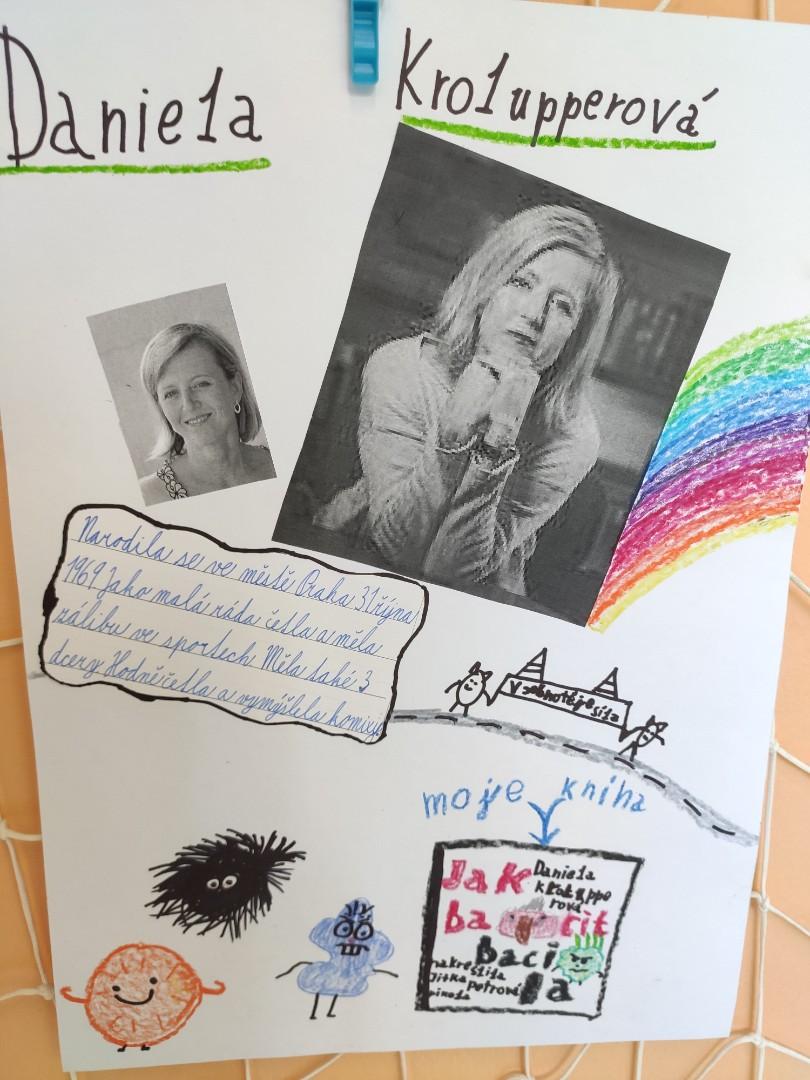 Daniela
Krolupperová
Narodila se ve městě Praha 31října
1969 Jako malá ráda četla a měla
zálibu ve sportech Měla také 3
dcery Hodně četla a vymýšlela komixy
V jednotě je síla
moje kniha
Jak
Daniela
krolupperová
ba cit
baci
la
nakreslila
Jitka petrová